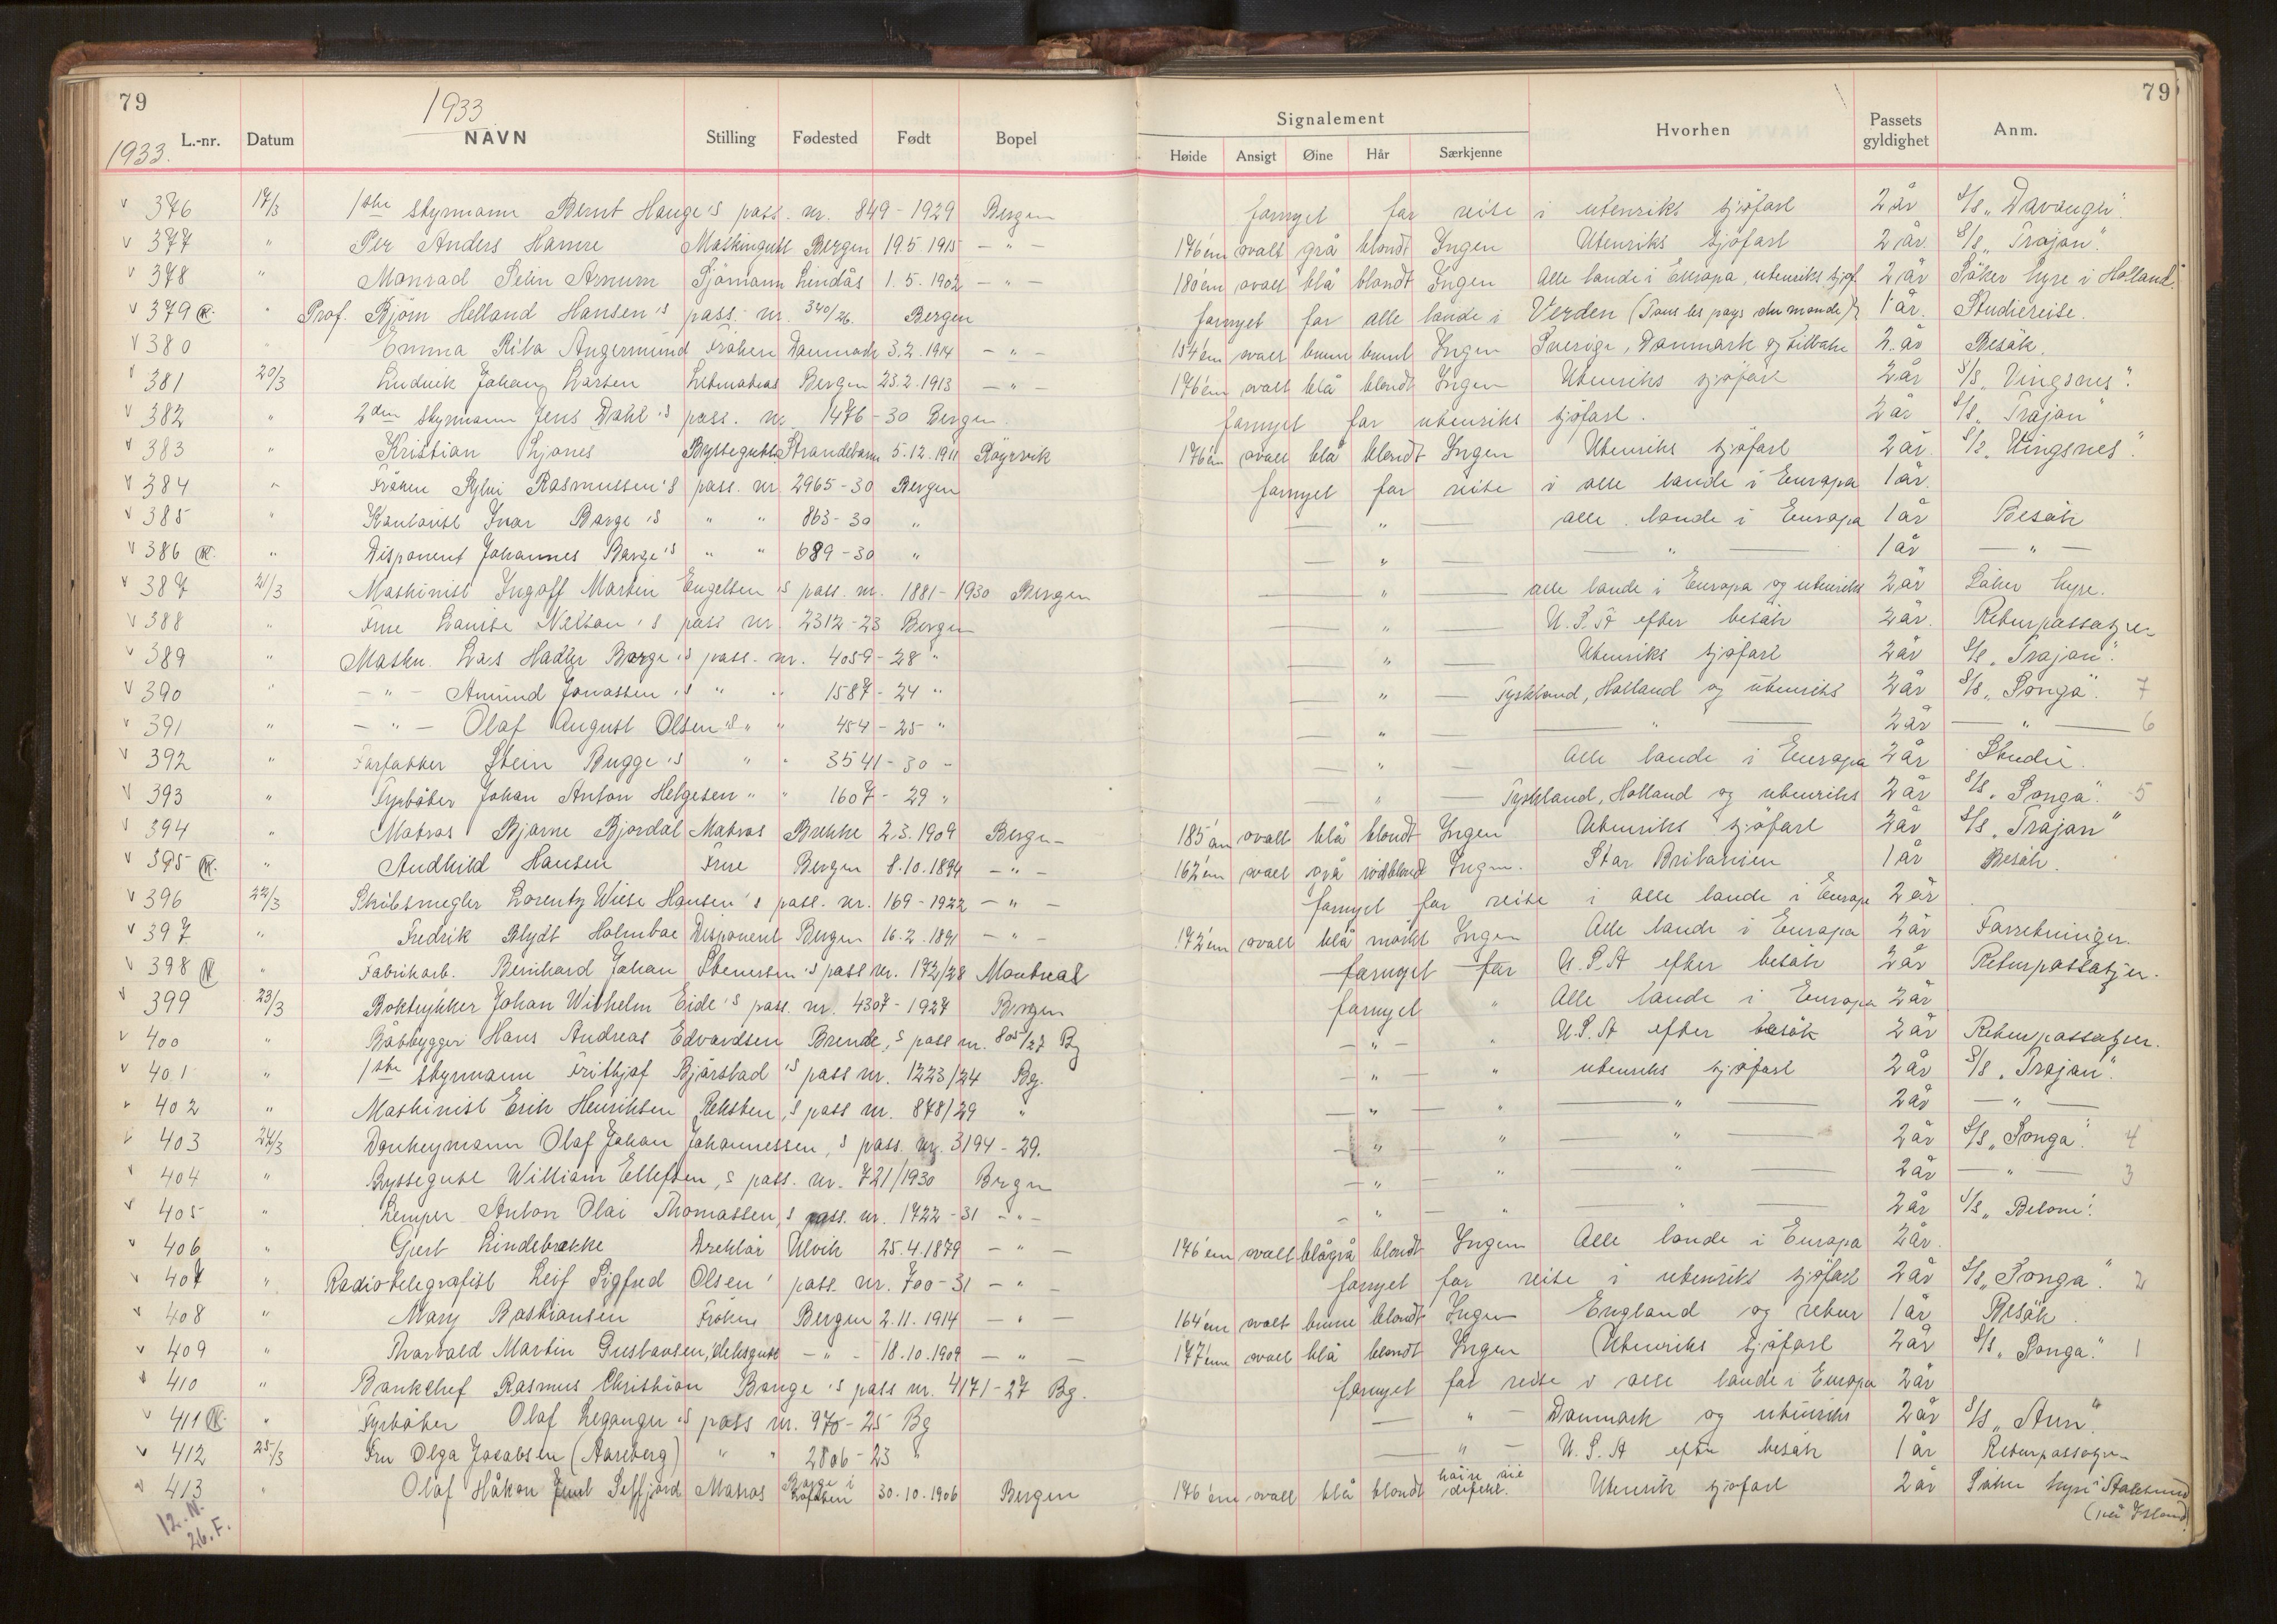 79
1933
79
1933. L.-nr. Datum NAVN Stilling Fødested Født Bopel Signalement Høide Ansigt Øine Hår Særkjenne Hvorhen Passets gyldighet Anm.
v 376 17/3 1ste styrmann Bernt Hauge's pass. nr. 849-1929 Bergen fornyet for reise i utenriks sjøfart 2 år S/S „Davanger".
v 377 " Per Anders Hamre Maskingutt Bergen 19.5.1915 - " - 176 cm ovalt grå blondt Ingen Utenriks sjøfart 2 år. S/S „Trajan".
v 378 " Monrad Arnum Sjømann Lindås 1.5.1902 - " - 180 cm ovalt blå blondt Ingen Alle lande i Europa, utenriks sjøf. 2 år Søker hyre i Holland.
v 379 N. " Prof. Bjørn Helland Hansen's pass. nr. 340/26. Bergen fornyet for alle lande i Verden (Tous les pays du monde) 1 år. Studiereise.
v 380 " Emma Rita Angermund Frøken Danmark 3.2.1914 - " - 154 cm ovalt brune brunt Ingen Sverige, Danmark og tilbake 2 år Besøk.
v 381 20/3 Ludvik Johan Larsen Letmatros Bergen 23.2.1913 - " - 176 cm ovalt blå blondt Ingen Utenriks sjøfart 2 år S/S „Vingsnes".
v 382 " 2den styrmann Jens Dahl's pass. nr. 1476-30 Bergen. fornyet for utenriks sjøfart. 2 år S/S „Trajan"
v 383 " Kristian Byssegutt Strandebarm 5.12.1911 Røyrvik 176 cm ovalt blå blondt Ingen Utenriks sjøfart 2 år S/S „Vingsnes".
v 384 " Frøken Sylvi Rasmussen's pass. nr. 2965-30 Bergen fornyet for reise i alle lande i Europa 1 år.
v 385 " Kontorist Ivar Barge's " " 863-30 " — " — alle lande i Europa 1 år Besøk
v 386 N. " Disponent Johannes Barge's " " 689-30 " — " — — " — 1 år — " —
v 387 21/3 Maskinist Ingolf Martin Engelsen's pass. nr. 1881-1930 Bergen — " — alle lande i Europa og utenriks 2 år Søker hyre.
v 388 " Frue Louise Nelson's pass nr. 2312-23 Bergen — " — U.S.A efter besøk 2 år. Returpassasjer
v 389 " Maskn. Lars Hadler Borge's pass. nr. 4059-28 " — " — Utenriks sjøfart 2 år S/S „Trajan".
v 390 " - " - Amund Jonassen's " " 1587-24 " — " — Tyskland, Holland og utenriks 2 år S/S „Songa". 7
v 391 " - " - Olaf August Olsen's " " 454-25 " — " — — " — 2 år — " — 6
v 392 " Forfatter Stein Bugge's " " 3541-30 - — " — Alle lande i Europa 2 år Studie.
v 393 " Fyrbøter Johan Anton Helgesen " " 1607-29 " — " — Tyskland, Holland og utenriks 2 år S/S „Songa". 5
v 394 " Matros Bjarne Bjordal Matros Brekke 2.3.1909 Bergen 185 cm ovalt blå blondt Ingen Utenriks sjøfart 2 år S/S „Trajan"
v 395 N. " Audhild Hansen Frue Bergen 8.10.1894 - " - 162 cm ovalt grå rødblond Ingen. Stor Britanien 1 år Besøk.
v 396 22/3 Skibsmegler Lorentz Wiese Hansen's pass. nr. 169-1922 - " - fornyet for reise i alle lande i Europa 2 år
v 397 " Fredrik Blydt Holmboe Disponent Bergen 16.2.1891 - " - 172 cm ovalt blå mørkt Ingen Alle lande i Europa 2 år Forretninger.
v 398 N " Fabrikarb. Bernhard Johan Stenersen's pass nr. 172/28 Montreal fornyet for U.S.A efter besøk 2 år Returpassasjer.
v 399 23/3 Boktrykker Johan Wilhelm Eide's pass. nr. 4307-1927 Bergen fornyet " Alle lande i Europa 2 år
v 400 " Båtbygger Hans Andreas Edvardsen Brende,s pass nr. 805/27 Bg — " — " U.S.A efter besøk 2 år Returpassasjer.
v 401 " 1ste styrmann Frithjof Bjørstad's pass nr. 1223/24 Bg. — " — " utenriks sjøfart 2 år S/S „Trajan".
v 402 " Maskinist Erik Henriksen Reksten,s pass nr. 878/29 " — " — " — " — 2 år — " —
v 403 24/3 Donkeymann Olaf Johan Johannessen,s pass. nr. 3194-29. — " — " — " — 2 år S/S „Songa". 4
v 404 " Byssegutt William Ellefsen,s pass. nr. 721/1930 Bergen — " — " — " — 2 år — " — 3
v 405 " Lemper Anton Olai Thomassen,s pass. nr. 1722-31 - " - — " — " — " — 2 år S/S „
v 406 " Gjert Lindebrække Ulvik 25.4.1879 - " - 176 cm ovalt blågrå blondt Ingen Alle lande i Europa 2 år.
v 407 " Radiotelegrafist Leif Sigfred Olsen' pass. nr. 700-31 - " - fornyet for reise i utenriks sjøfart 2 år S/S „Songa". 2
v 408 " Mary Bastiansen Frøken Bergen 2.11.1914 - " - 164 cm ovalt brune blondt Ingen England og retur 1 år Besøk.
v 409 " Thorvald Martin Gustavsen, dekksgutt - " - 18.10.1909 - " - 177 cm ovalt blå blondt Ingen Utenriks sjøfart 2 år S/S „Songa". 1
v 410 " Bankchef Rasmus Christian Bange's pass nr. 4171-27 Bg. fornyet for reise i alle lande i Europa 2 år
v 411 N. " Fyrbøter Olaf Leganger's pass nr. 970-25 Bg — " — Danmark og utenriks 2 år S/S „Ann".
v 412 25/3 Fru Olga Jacobsen (Aareberg) " " 2806-23 " — " — U.S.A efter besøk 1 år Returpassasjer
v 413 " Olaf Håkon Juul Matros Borge i Lofoten 30.10.1906 Bergen 176 cm ovalt blå blondt høire øie defekt. Utenrik sjøfart 2 år Søker hyre i
(på Island)
12. N.
26. F.